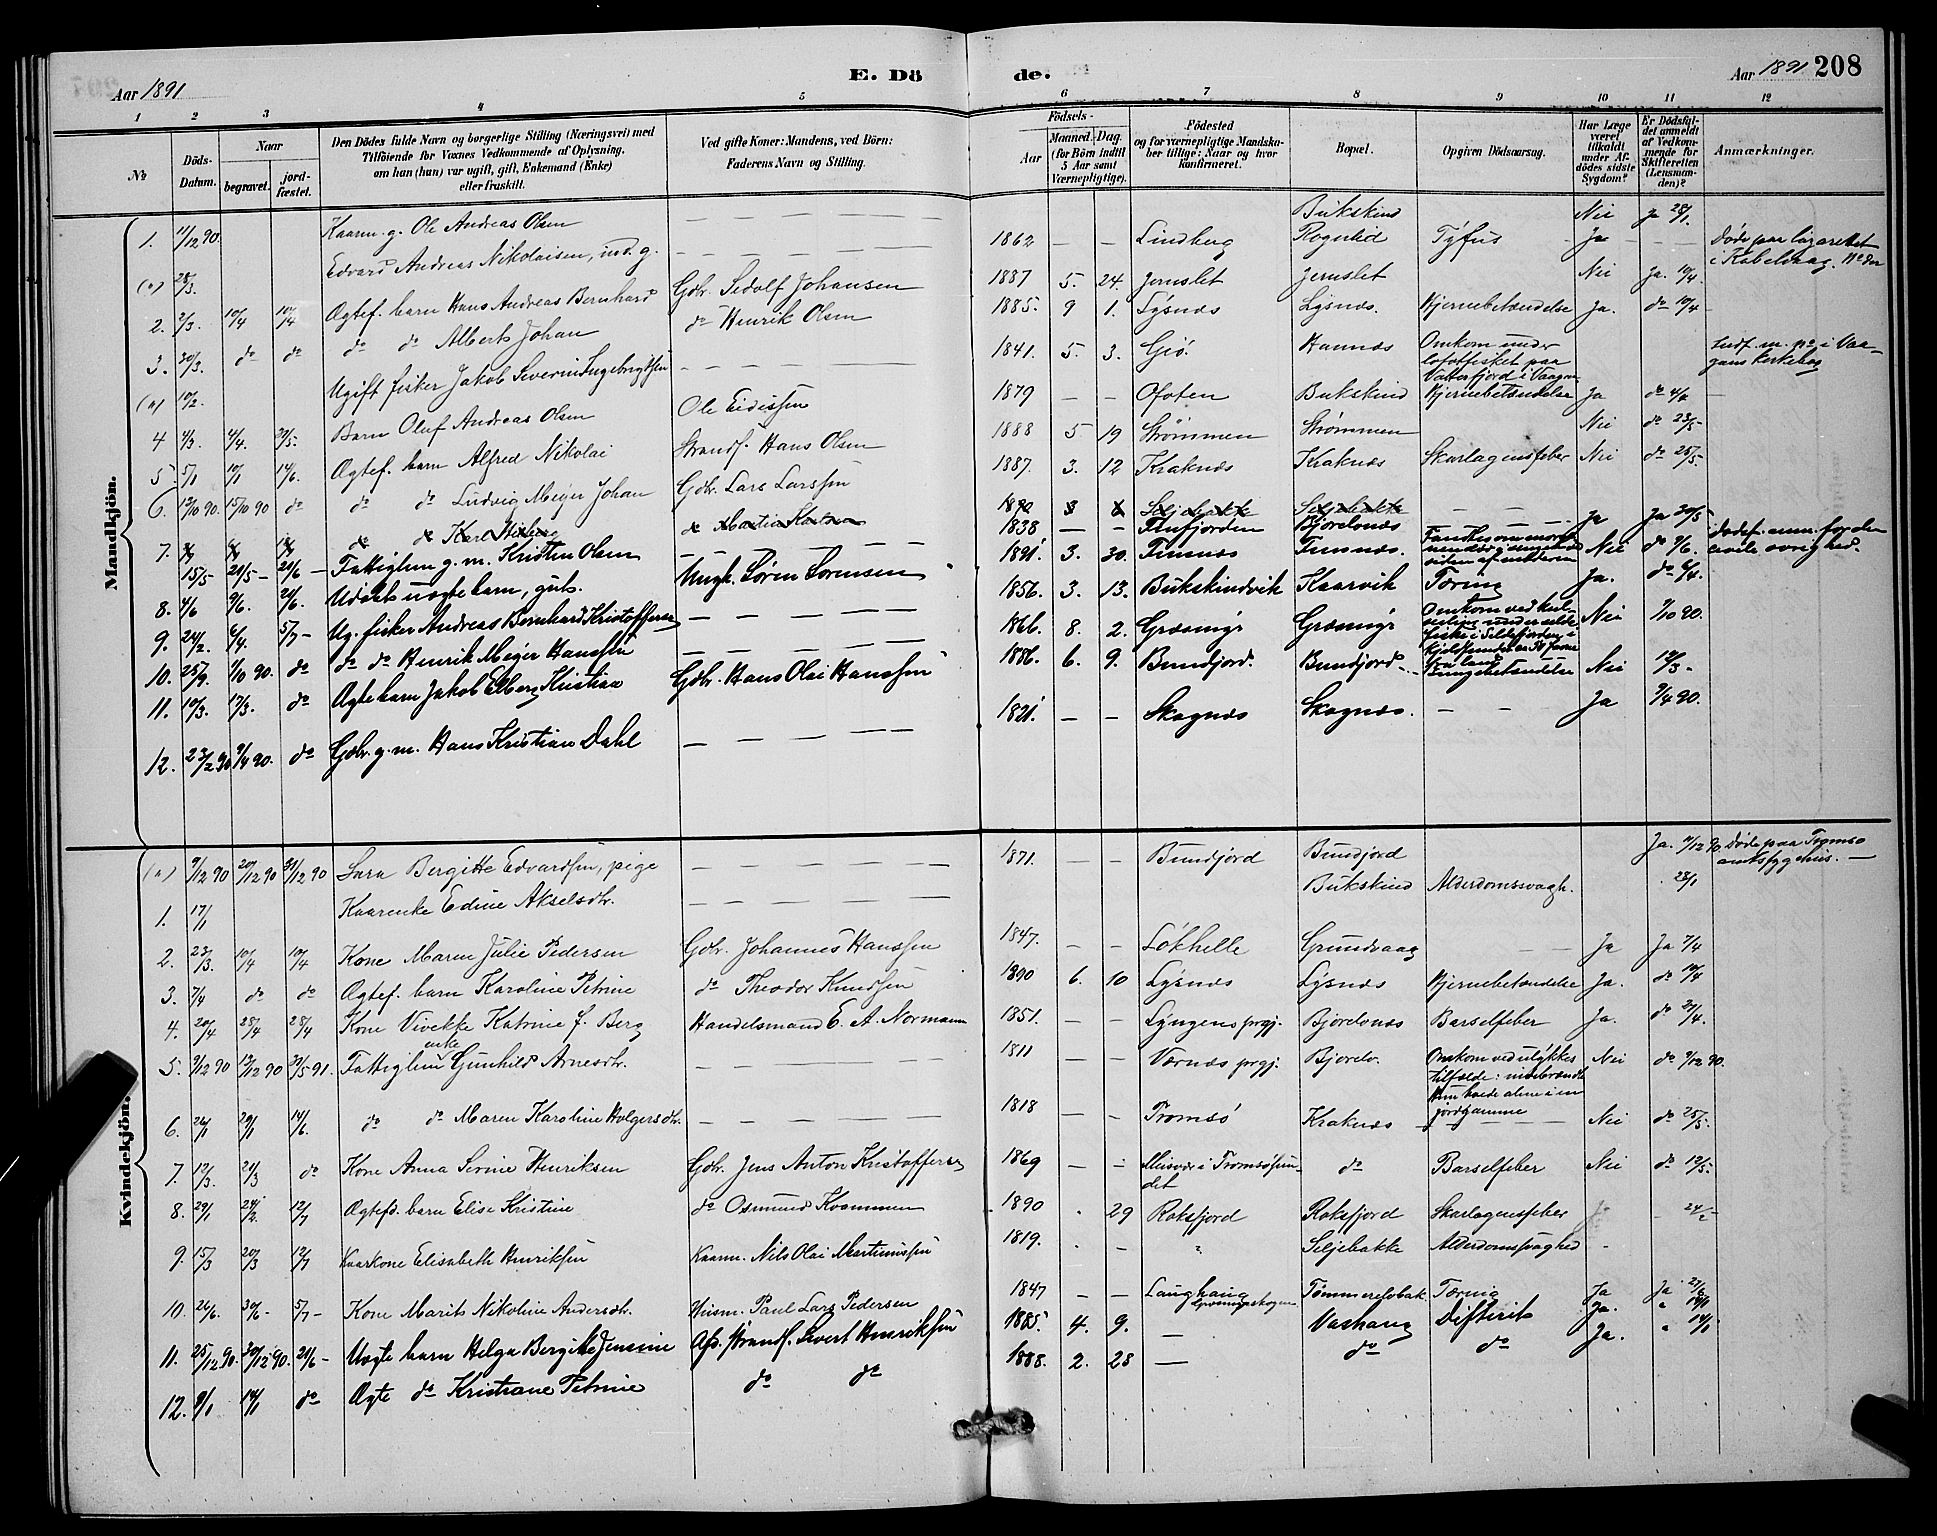 Aar 1891
E. Dö de.
Aar 1891 208
1 2 3 4 5 6 7 8 9 10 11 12
No
Döds-Datum.
Naar
begravet. jord-fæstet.
Den Dödes fulde Navn og borgerlige Stilling (Næringsvei) med
Tilföiende for Voxnes Vedkommende af Oplysning,
om han (hun) var ugift, gift, Enkemand (Enke)
eller fraskilt.
Ved gifte Koner: Mandens, ved Börn:
Faderens Navn og Stilling.
Födsels-
Aar Maaned. Dag.
(for Börn indtil
5 Aar samt
Værnepligtige).
Födested
og for værnepligtige Mandska-
ber tillige: Naar og hvor
konfirmeret.
Bopæl.
Opgiven Dödsaarsag.
Har Læge
været
tilkaldt
under Af-
dödes sidste
Sygdom?
Er Dödsfal-
det anmeldt
af Vedkom-
mende for
Skifteretten
(Lensman-
den)?
Anmærkninger.
Mandkjön.
1. 11/12 90. Kaarm. g. Ole Andreas Olsen — — — Bukskind Nei Ja 28/1
(a) 28/3. Edvard Andreas Nikolaisen, ind. g. — — — 1862 — — Lindberg Rognlid Tyfus Ja — Døde paa lazarettet i Kabelvaag.
2. 2/3. 10/4 10/4 Ægtef. barn Hans Andreas Bernhard Gbr. Sedolf Johansen 1887 5. 24. Jernslet Jernslet Nei Ja. 10/4.
3. 30/3. do do do do Alberts Johan do Henrik Olsen 1885. 9 1. Lysnæs Lysnæs. Hjernebetændelse Ja. do 10/4
(a) 10/2. Ugift fisker Jakob Severin Ingebrigtsen — — — 1841. 5. 3. Giö. Hannæs Omkom under lofotfisket paa Vatterfjord i Vaagan Indf. m. no i Vaagans kirkebog
4 4/3. 4/4. 29/5. Barn Oluf Andreas Olsen Ole Eidissen 1879 — — Ofoten Bukskind Hjernebetændelse Ja do
5. 5/1 10/1 14/6. Ægtef. barn Alfred Nikolai Strandf. Hans Olsen 1888 5 19 Strømmen Strømmen Nei do 23/5-
6. 12/10 90. 15/10 90 do do do Ludvig Meyer Johan Gbr. Lars Larssen 1887. 3. 12 Kraknæs Kraknæs Skarlagensfeber Nei do 25/5-
7. do do Karl 1890 Seljebakke Seljebakke
15/5- 21/5- 21/6 — Fattiglem g. m. Kristen Olsen — — — 1838 — — Finfjorden Bjorelvnæs — — Ja Ja 30/5
8. 4/6 9/6. 21/6. Udøbt uægte barn, gut. Ungk. Søren Sørensen 1891. 3. 30. Finsnæs Finsnæs. Nei do 9/6. Dødsf. anm. for den civile øvrighed.
9. 24/2. 6/4. 5/7- Ug. fisker Andreas Bernhard Kristoffersen — — — 1856. 3. 13. Bukskindvik Kaarvik Tæring Ja. do 6/4.
10. 25/9. 1/10 90. do do do Henrik Meyer Hanssen — — — 1866. 8. 2. Græsmyr Græsmyr Nei 1/10 90.
11. 10/3. 17/3. do Ægte barn Jakob Elberg Kristian Gbr. Hans Olai Hanssen 1886. 6. 9. Bundjord. Bundjord. Lungebetændelse Nei 12/3-
12. 23/2 90 9/4 90. do Gbr. g. m. Hans Kristian Dahl — — — 1821. — — Skognæs Skognæs. — — — Ja 9/4 90.
Kvindekjön.
(a) 9/12 90 20/12 90 31/12 90 Sara Bergitte Edvardsen, pige — — — 1871. — — Bundjord Bundjord Ja. 11/12 90. Døde paa Tromsø amtssygehus. —
1. 17/1 Kaarenke Edine Akselsdtr. — — — Bukskind Alderdomssvagh. 28/1
2. 23/3. 10/4 10/4 Kone Maren Julie Pedersen Gbr. Johannes Hanssen 1847. — — Løkhelle Grundvaag — — Ja Ja 7/4
3. 7/4 do do Ægtef. barn Karoline Petrine do Theodor Knudsen 1890 6. 10 Lysnæs Lysnæs Hjernebetændelse Ja. do 10/4
4. 20/4 28/4 28/4 Kone Vivekke Katrine f. Berg Handelsmand E. A. Normann 1851. — — Lyngens prgj. Bjorelvnæs Barselfeber Ja. do 27/4.
5. 9/12 90 19/12 90 29/5 91. Fattiglem enke Gunhild Arnesdtr. — — — 1811 — — Værnæs prgj. Bjorelv. Omkom ved ulykkestilfælde: indebrændt. Hun boede alene i en jordgamme Nei do 9/12 90.
6. 26/1 29/1 14/6. do do Maren Karoline Holgersdtr. — — — 1818 — — Tromsø Kraknæs — — Nei do 25/5.
7. 12/3. 21/3 do Kone Anna Serine Henriksen Gbr. Jens Anton Kristoffersen 1869 — — Meisvær i Tromsøsundet do Barselfeber Nei do 12/5-
8. 29/1 24/2. 12/7 Ægtefd. barn Elise Kristine do Osmund Kosmunen 1890 . 29 Roksfjord Roksfjord Skarlagensfeber — 24/2-
9. 15/3 20/3 12/7 Kaarkone Elisabeth Henriksen Kaarm. Nils Olai Martinussen 1819. . — " Seljebakke Alderdomssvaghed -
10. 26/6. 30/6- 5/7- Kone Marits Nikoline Andersdtr. Husm. Paul Lars Pedersen 1847 — — Langhaug Tømmerelvbak. Tæring Ja Ja 27/6
11. 25/12 90. 30/12 90. 21/6- Uægte barn Helga Bergitte Jensine Afs. Strandf. Sivert Henriksen 1885. 4. 9. — Vashaug Difterit Ja. " 14/1
12. 9/1 14/1 do Ægte do Kristiane Petrine do do 1888. 2. 28 — do do Ja. " 14/1